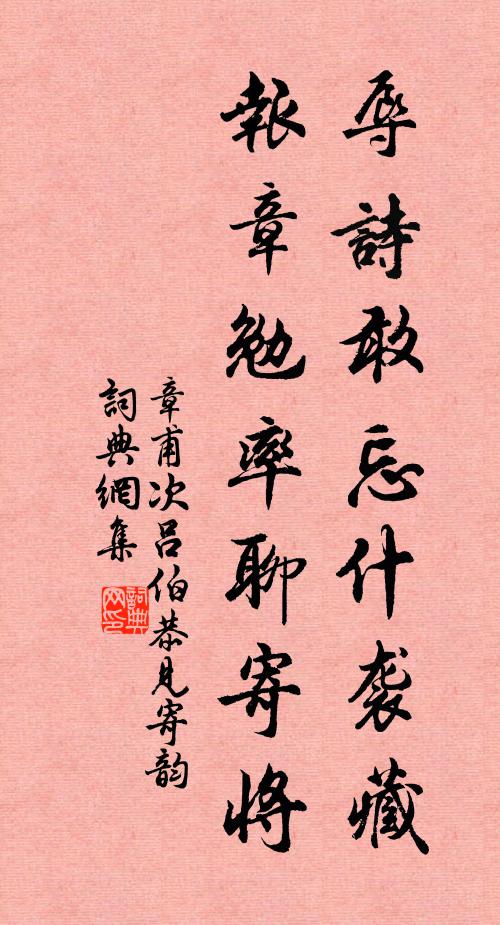 辱詩敢忘什袭藏
報章勉率聊寄将
章甫次吕伯恭見寄韵
詞典網集
詞典网印